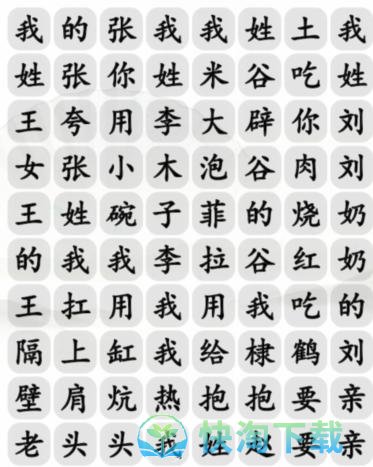 我的张我我姓土我
姓张你姓米谷吃姓
王夸用李大辟你刘
女张小木泡谷肉刘
王姓碗子菲的烧奶
的我我李拉谷红奶
王扛用我用我吃的
隔上缸我给棣鹤刘
壁肩炕热抱抱要亲
老头头我姓赵要亲
快淘下载